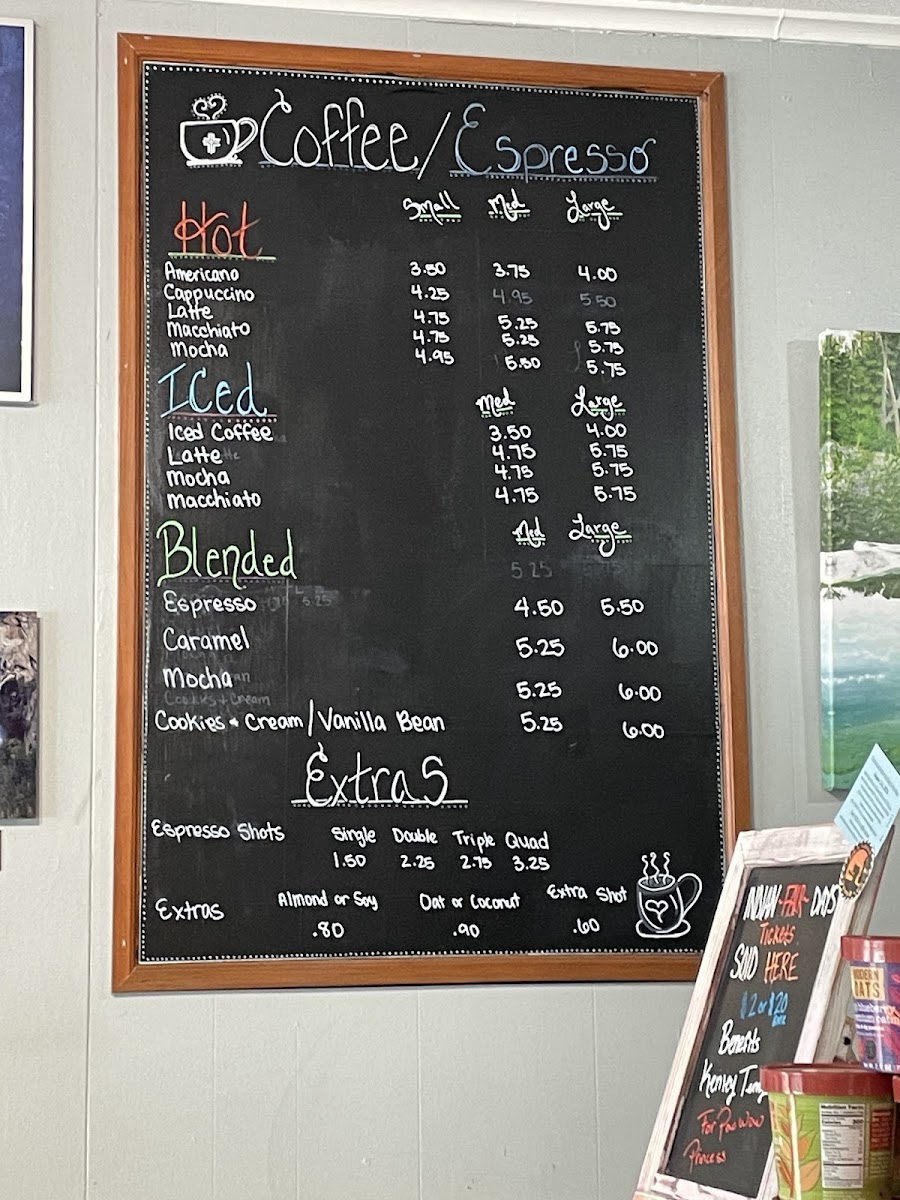 Coffee/Espresso
Hot Small Med Large
Americano 3.50 3.75 4.00
Cappuccino 4.25 4.95 5.50
Latte 4.75 5.25 5.75
Macchiato 4.75 5.25 5.75
Mocha 4.95 5.50 5.75
Iced Med Large
Iced Coffee 3.50 4.00
Latte 4.75 5.75
Mocha 4.75 5.75
Macchiato 4.75 5.75
Blended Med Large
5.25
Espresso 5.25 4.50 5.50
Caramel 5.25 6.00
Mocha 5.25 6.00
Cookies + Cream
Cookies + Cream/Vanilla Bean 5.25 6.00
Extras
Espresso Shots Single Double Triple Quad
1.50 2.25 2.75 3.25
Extras Almond or Soy Oat or Coconut Extra Shot
.80 .90 .60
INDIAN FAIR DAYS
Tickets
SOLD HERE
$2 or $20
Benefits
For Pow Wow
Princess
MODERN
OATS
Nutrition Facts
Calories